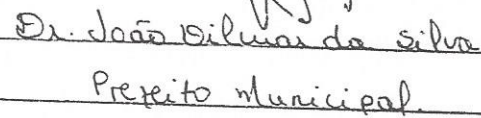 Dr. João Gilmar da Silva
Prefeito Municipal.